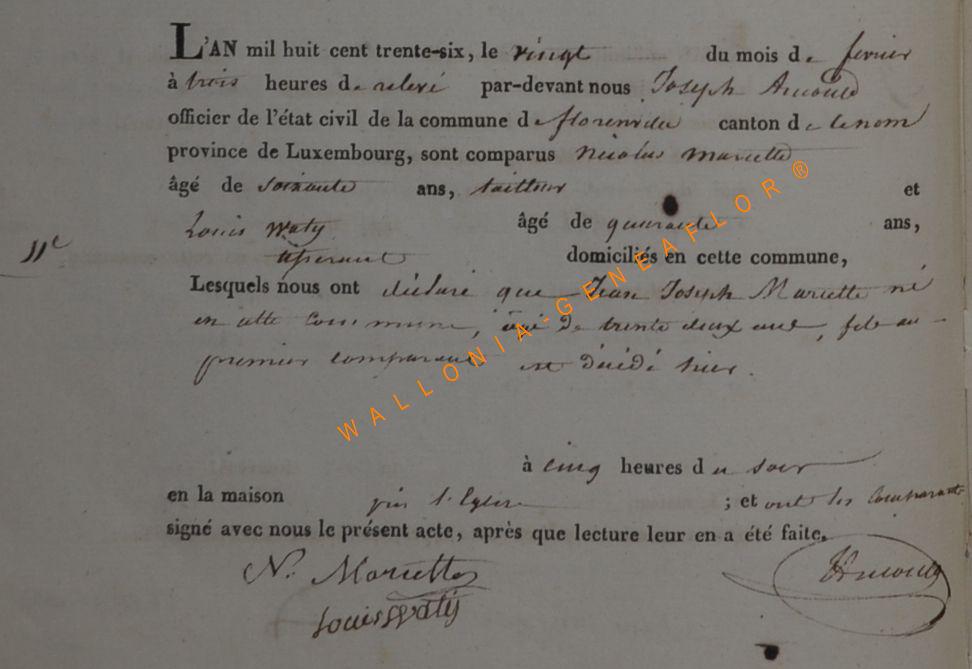 L'AN mil huit cent trente-six, le vingt du mois de fevrier
à trois heures de relevé par-devant nous Joseph Arnould
officier de l'état civil de la commune de florenville canton de ce nom
province de Luxembourg, sont comparus nicolas marcette
âgé de soixante ans, tailleur et
Louis Waty âgé de quarante ans,
11e
domiciliés en cette commune,
Lesquels nous ont déclaré que Jean Joseph Marcette né
en cette commune, agé de trente deux ans, fils au
premier comparant est décédé hier.
à cinq heures du soir
en la maison près l'Eglise ; et ont les comparants
signé avec nous le présent acte, après que lecture leur en a été faite.
N. Marcette
Louis Waty
Arnould
WALLONIA-GENEAFLOR®